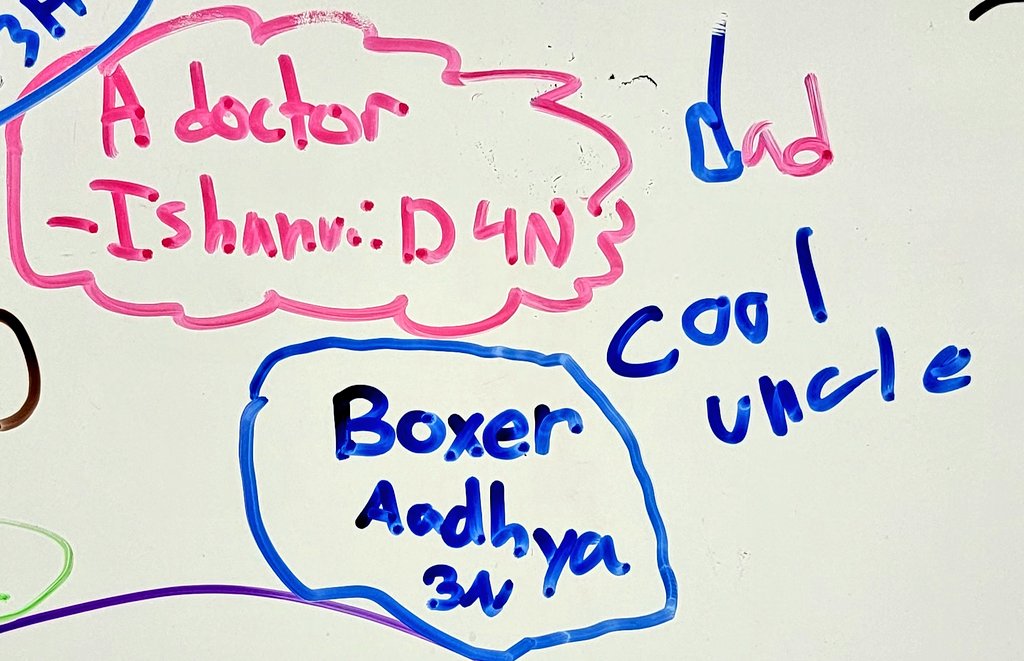 A doctor
-Ishanvi D 4N
dad
cool
uncle
Boxer
Aadhya
3N